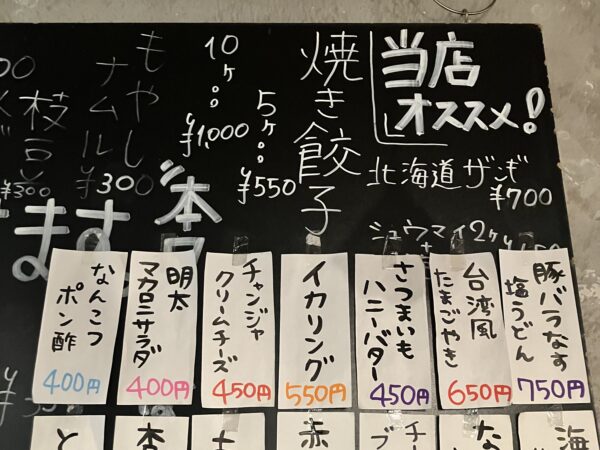 当店
オススメ!
北海道ザンギ
¥700
シュウマイ2ヶ
焼き餃子
5ヶ
¥550
10ヶ
¥1,000
もやし
ナムル
¥300
枝豆
¥300
ます
豚バラなす
塩うどん
750円
台湾風
たまごやき
650円
さつまいも
ハニーバター
450円
イカリング
550円
チャンジャ
クリームチーズ
450円
明太
マカロニサラダ
400円
なんこつ
ポン酢
400円